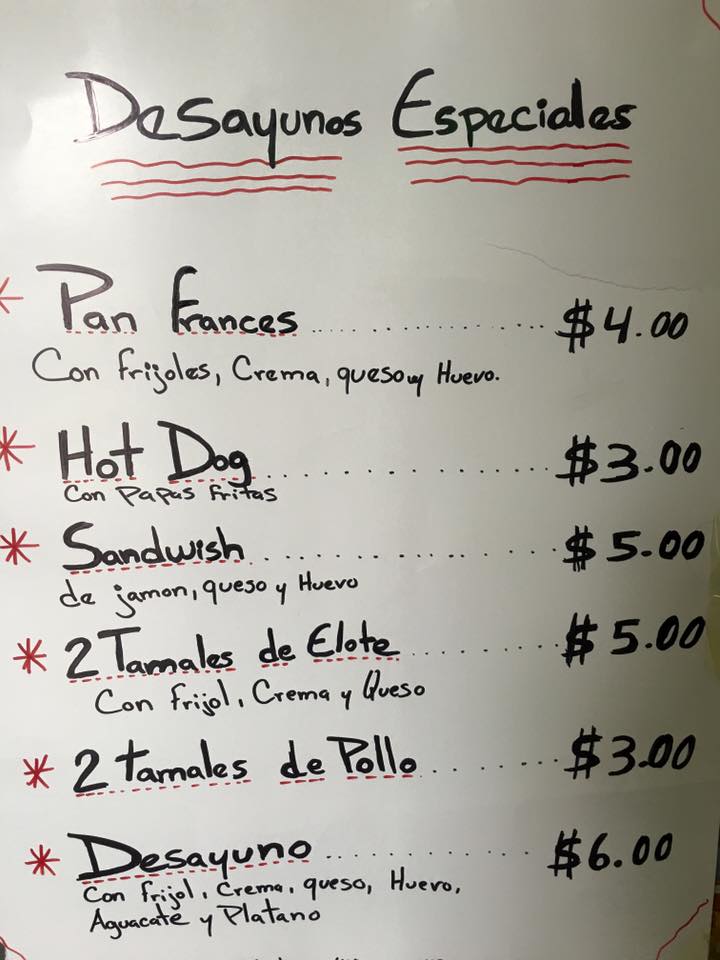 Desayunos Especiales
* Pan Frances ................ $4.00
Con frijoles, Crema, queso y Huevo.
* Hot Dog ................ $3.00
Con Papas Fritas
* Sandwish ................ $5.00
de jamon, queso y Huevo
* 2 Tamales de Elote ............ $5.00
Con frijol, Crema y Queso
* 2 tamales de Pollo ......... $3.00
* Desayuno ............ $6.00
Con frijol, Crema, queso, Huevo,
Aguacate y Platano